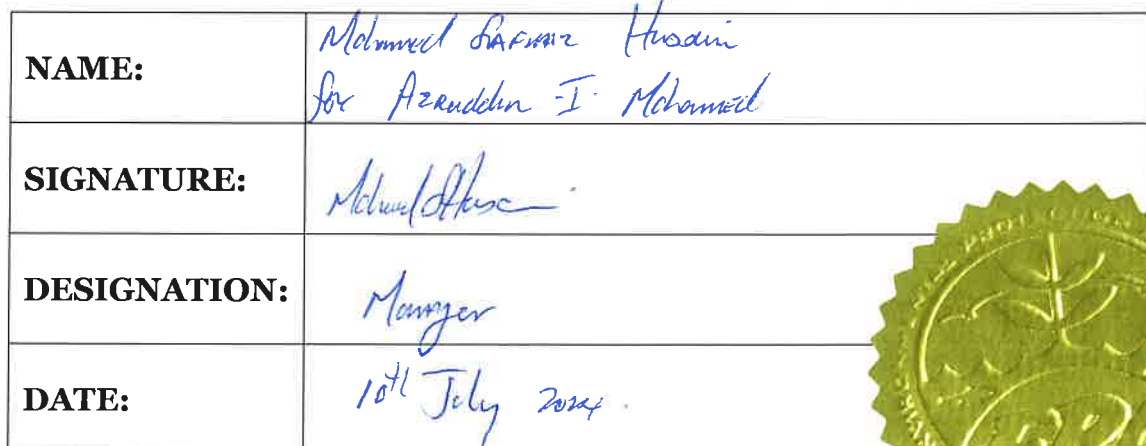 NAME:
Mohamed SAFRAAZ Husain
for Azruddin I. Mohamed
SIGNATURE:
DESIGNATION:
Manager
DATE:
10th July 2024.